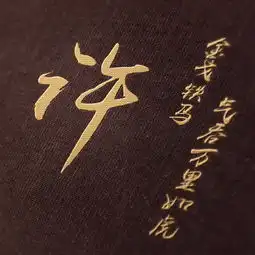 许
金戈铁马
气吞万里如虎